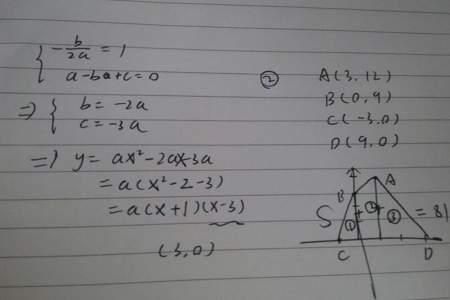 -b/2a = 1
a-ba+c=0
⇒ b = -2a
c = -3a
⇒) y = ax²-2ax-3a
= a(x²-2-3)
= a(x+1)(x-3)
(3,0)
②
A(3,12)
B(0,9)
C(-3,0)
D(9,0)
A
B
S ① ② ③ = 81
C D